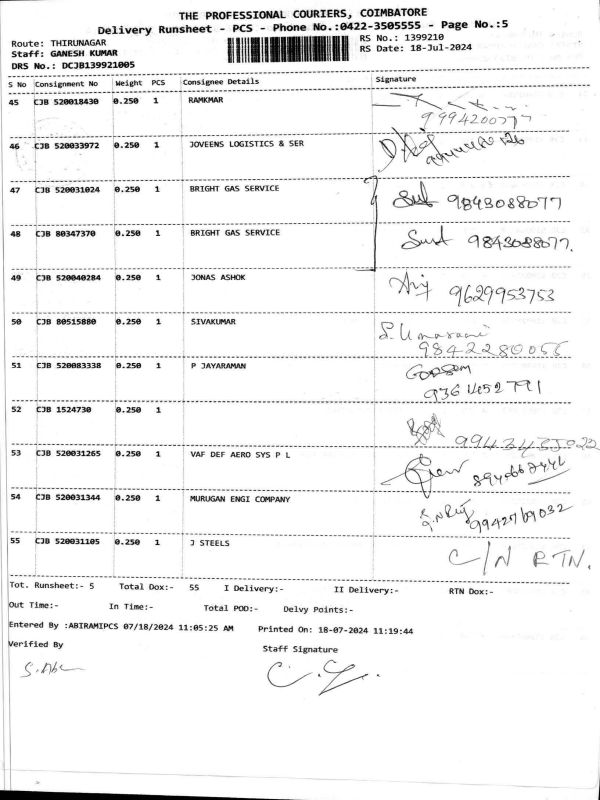 THE PROFESSIONAL COURIERS, COIMBATORE
Delivery Runsheet - PCS - Phone No.:0422-3505555 - Page No.:5
Route: THIRUNAGAR RS No.: 1399210
Staff: GANESH KUMAR RS Date: 18-Jul-2024
DRS No.: DCJB139921005
S No Consignment No Weight PCS Consignee Details Signature
45 CJB 520018430 0.250 1 RAMKMAR
9994200777
46 CJB 520033972 0.250 1 JOVEENS LOGISTICS & SER
47 CJB 520031024 0.250 1 BRIGHT GAS SERVICE 9843088077
48 CJB 80347370 0.250 1 BRIGHT GAS SERVICE 9843088077.
49 CJB 520040284 0.250 1 JONAS ASHOK
9629953753
50 CJB 80515880 0.250 1 SIVAKUMAR
9842280056
51 CJB 520083338 0.250 1 P JAYARAMAN
9361452791
52 CJB 1524730 0.250 1
53 CJB 520031265 0.250 1 VAF DEF AERO SYS P L
54 CJB 520031344 0.250 1 MURUGAN ENGI COMPANY
9942769032
55 CJB 520031105 0.250 1 J STEELS C/N RTN.
Tot. Runsheet:- 5 Total Dox:- 55 I Delivery:- II Delivery:- RTN Dox:-
Out Time:- In Time:- Total POD:- Delvy Points:-
Entered By :ABIRAMIPCS 07/18/2024 11:05:25 AM Printed On: 18-07-2024 11:19:44
Verified By Staff Signature